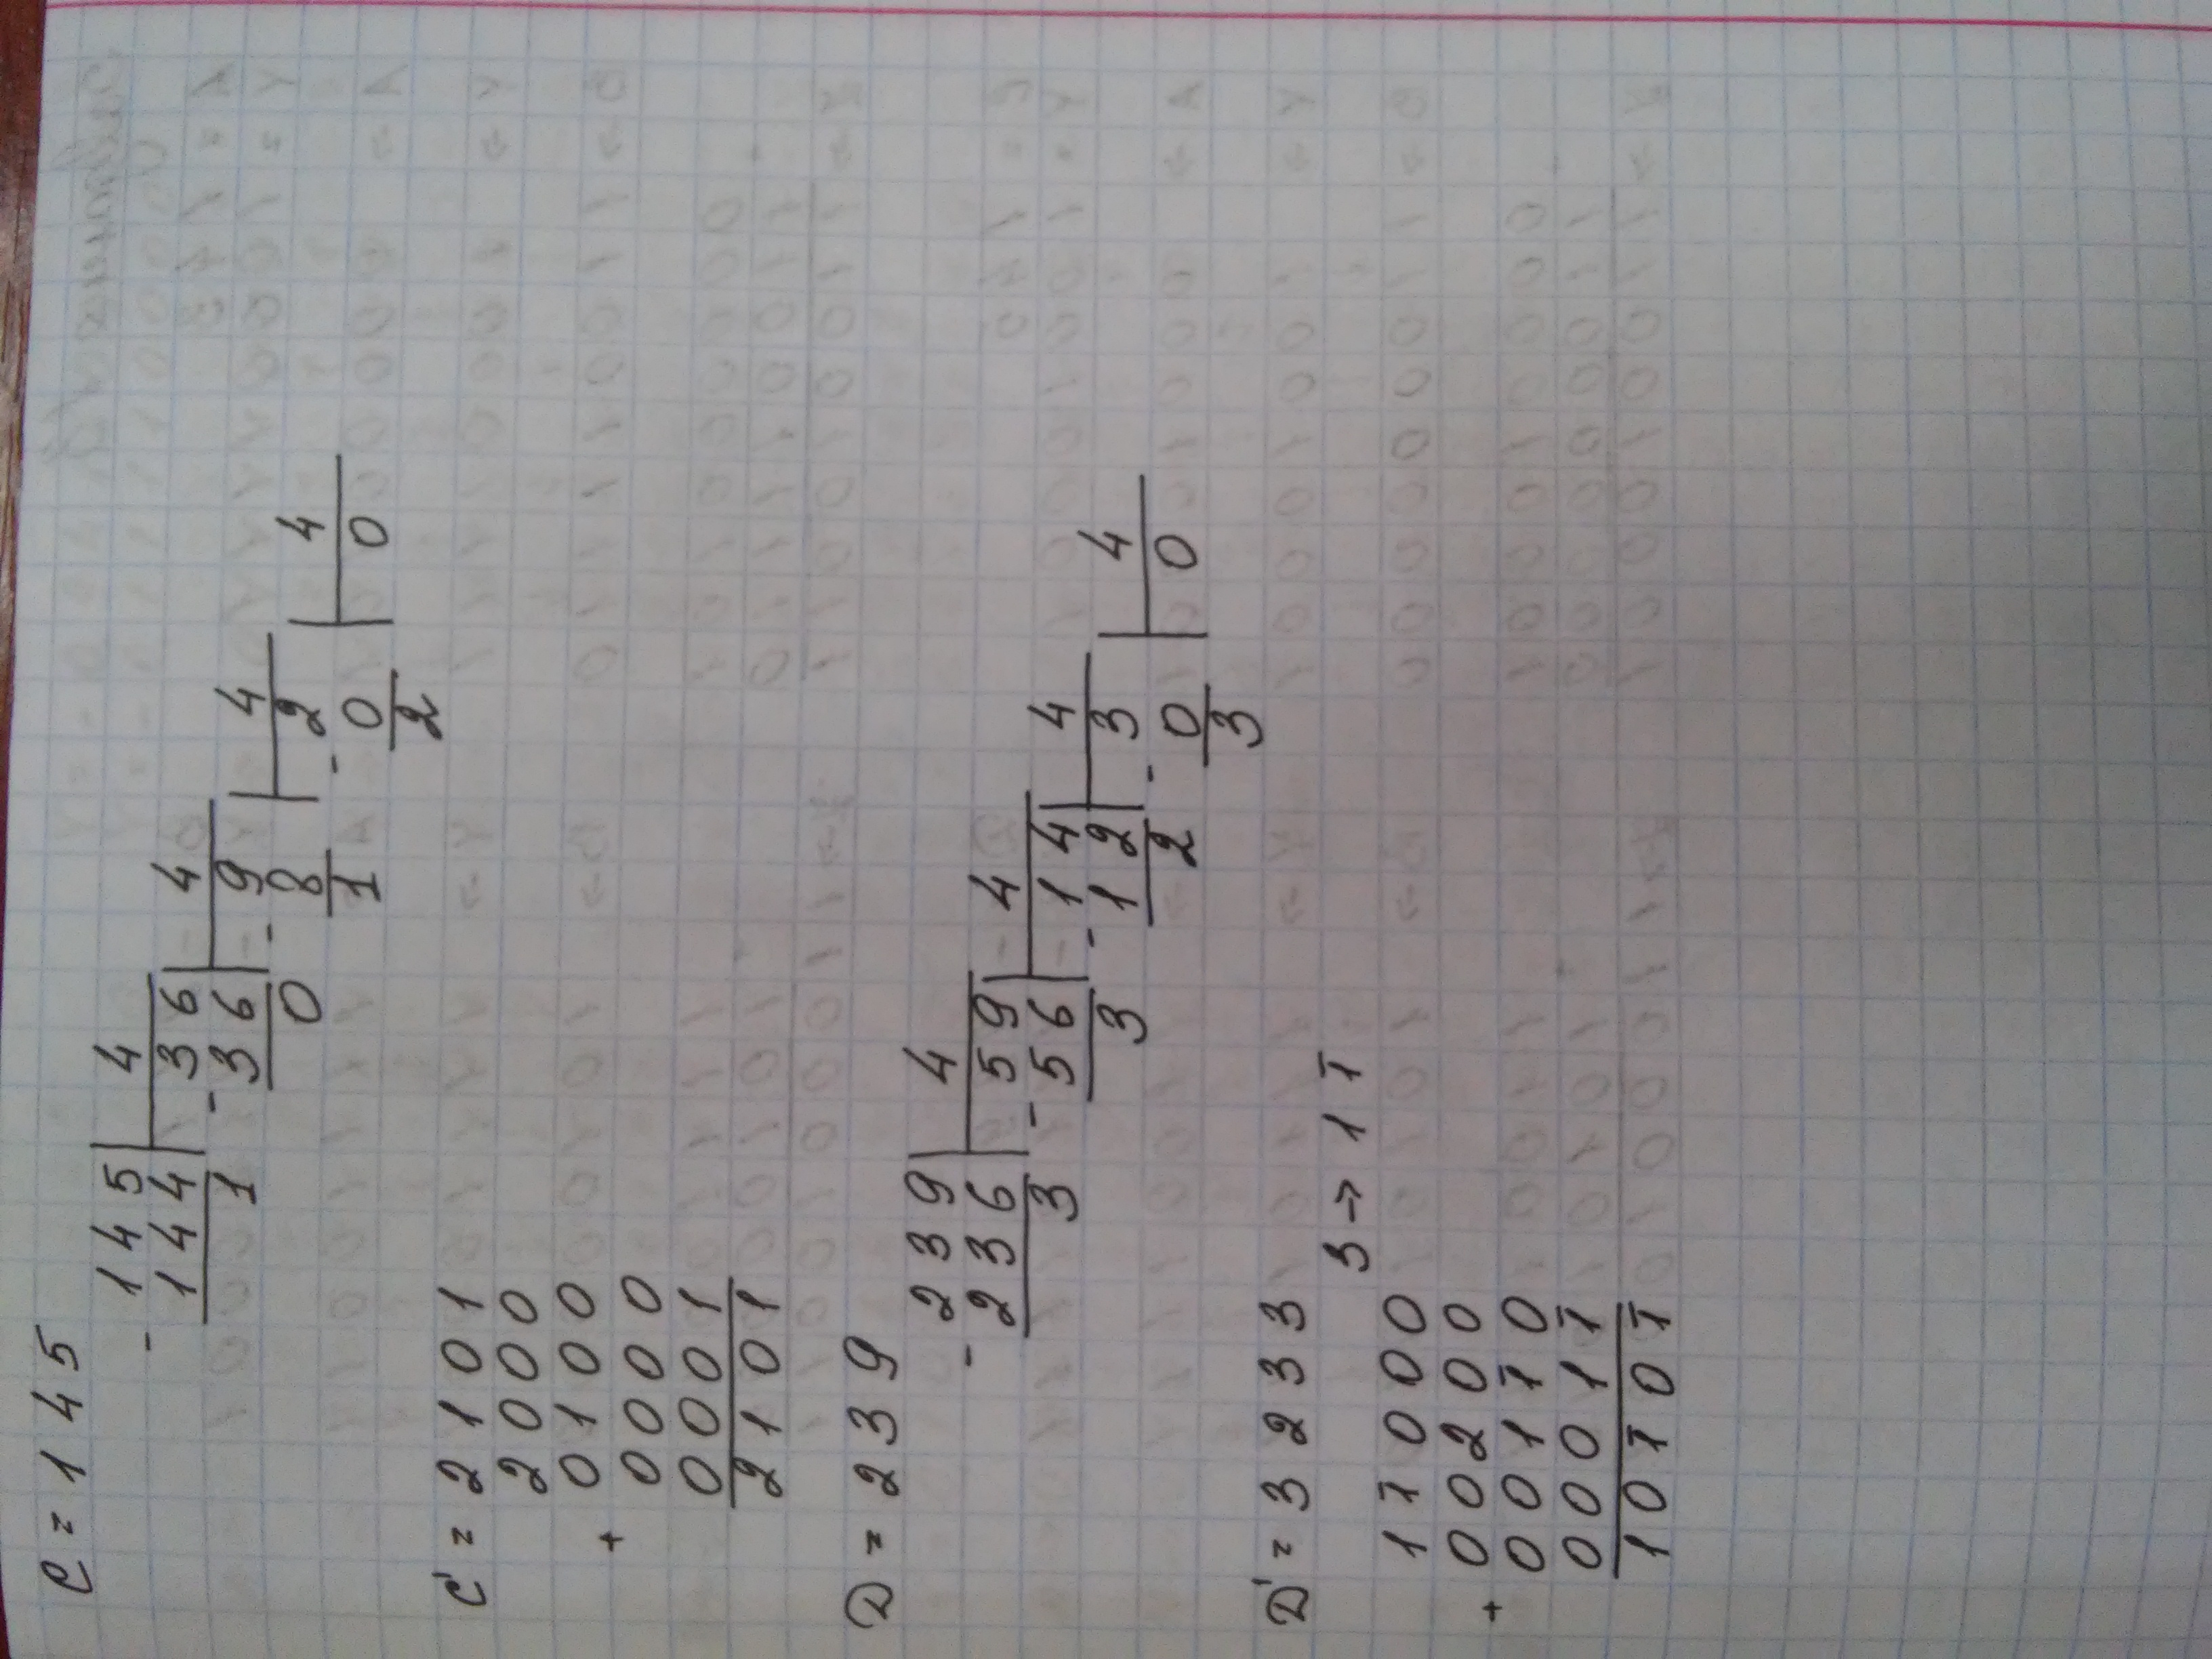 C = 145
- 145 | 4
144 | - 36 | 4
1 36 | - 9 | 4
0 8 | - 2 | 4
1 0 | 0
2
C' = 2101
2000
0100
+
0000
0001
2101
D = 239
- 239 | 4
236 | - 59 | 4
3 56 | - 14 | 4
3 12 | - 3 | 4
2 0 | 0
3
D' = 3233
3 → 1 1̄
1 1̄ 0 0 0
0 0 2 0 0
+
0 0 1 1̄ 0
0 0 0 1 1̄
1 0 1̄ 0 1̄